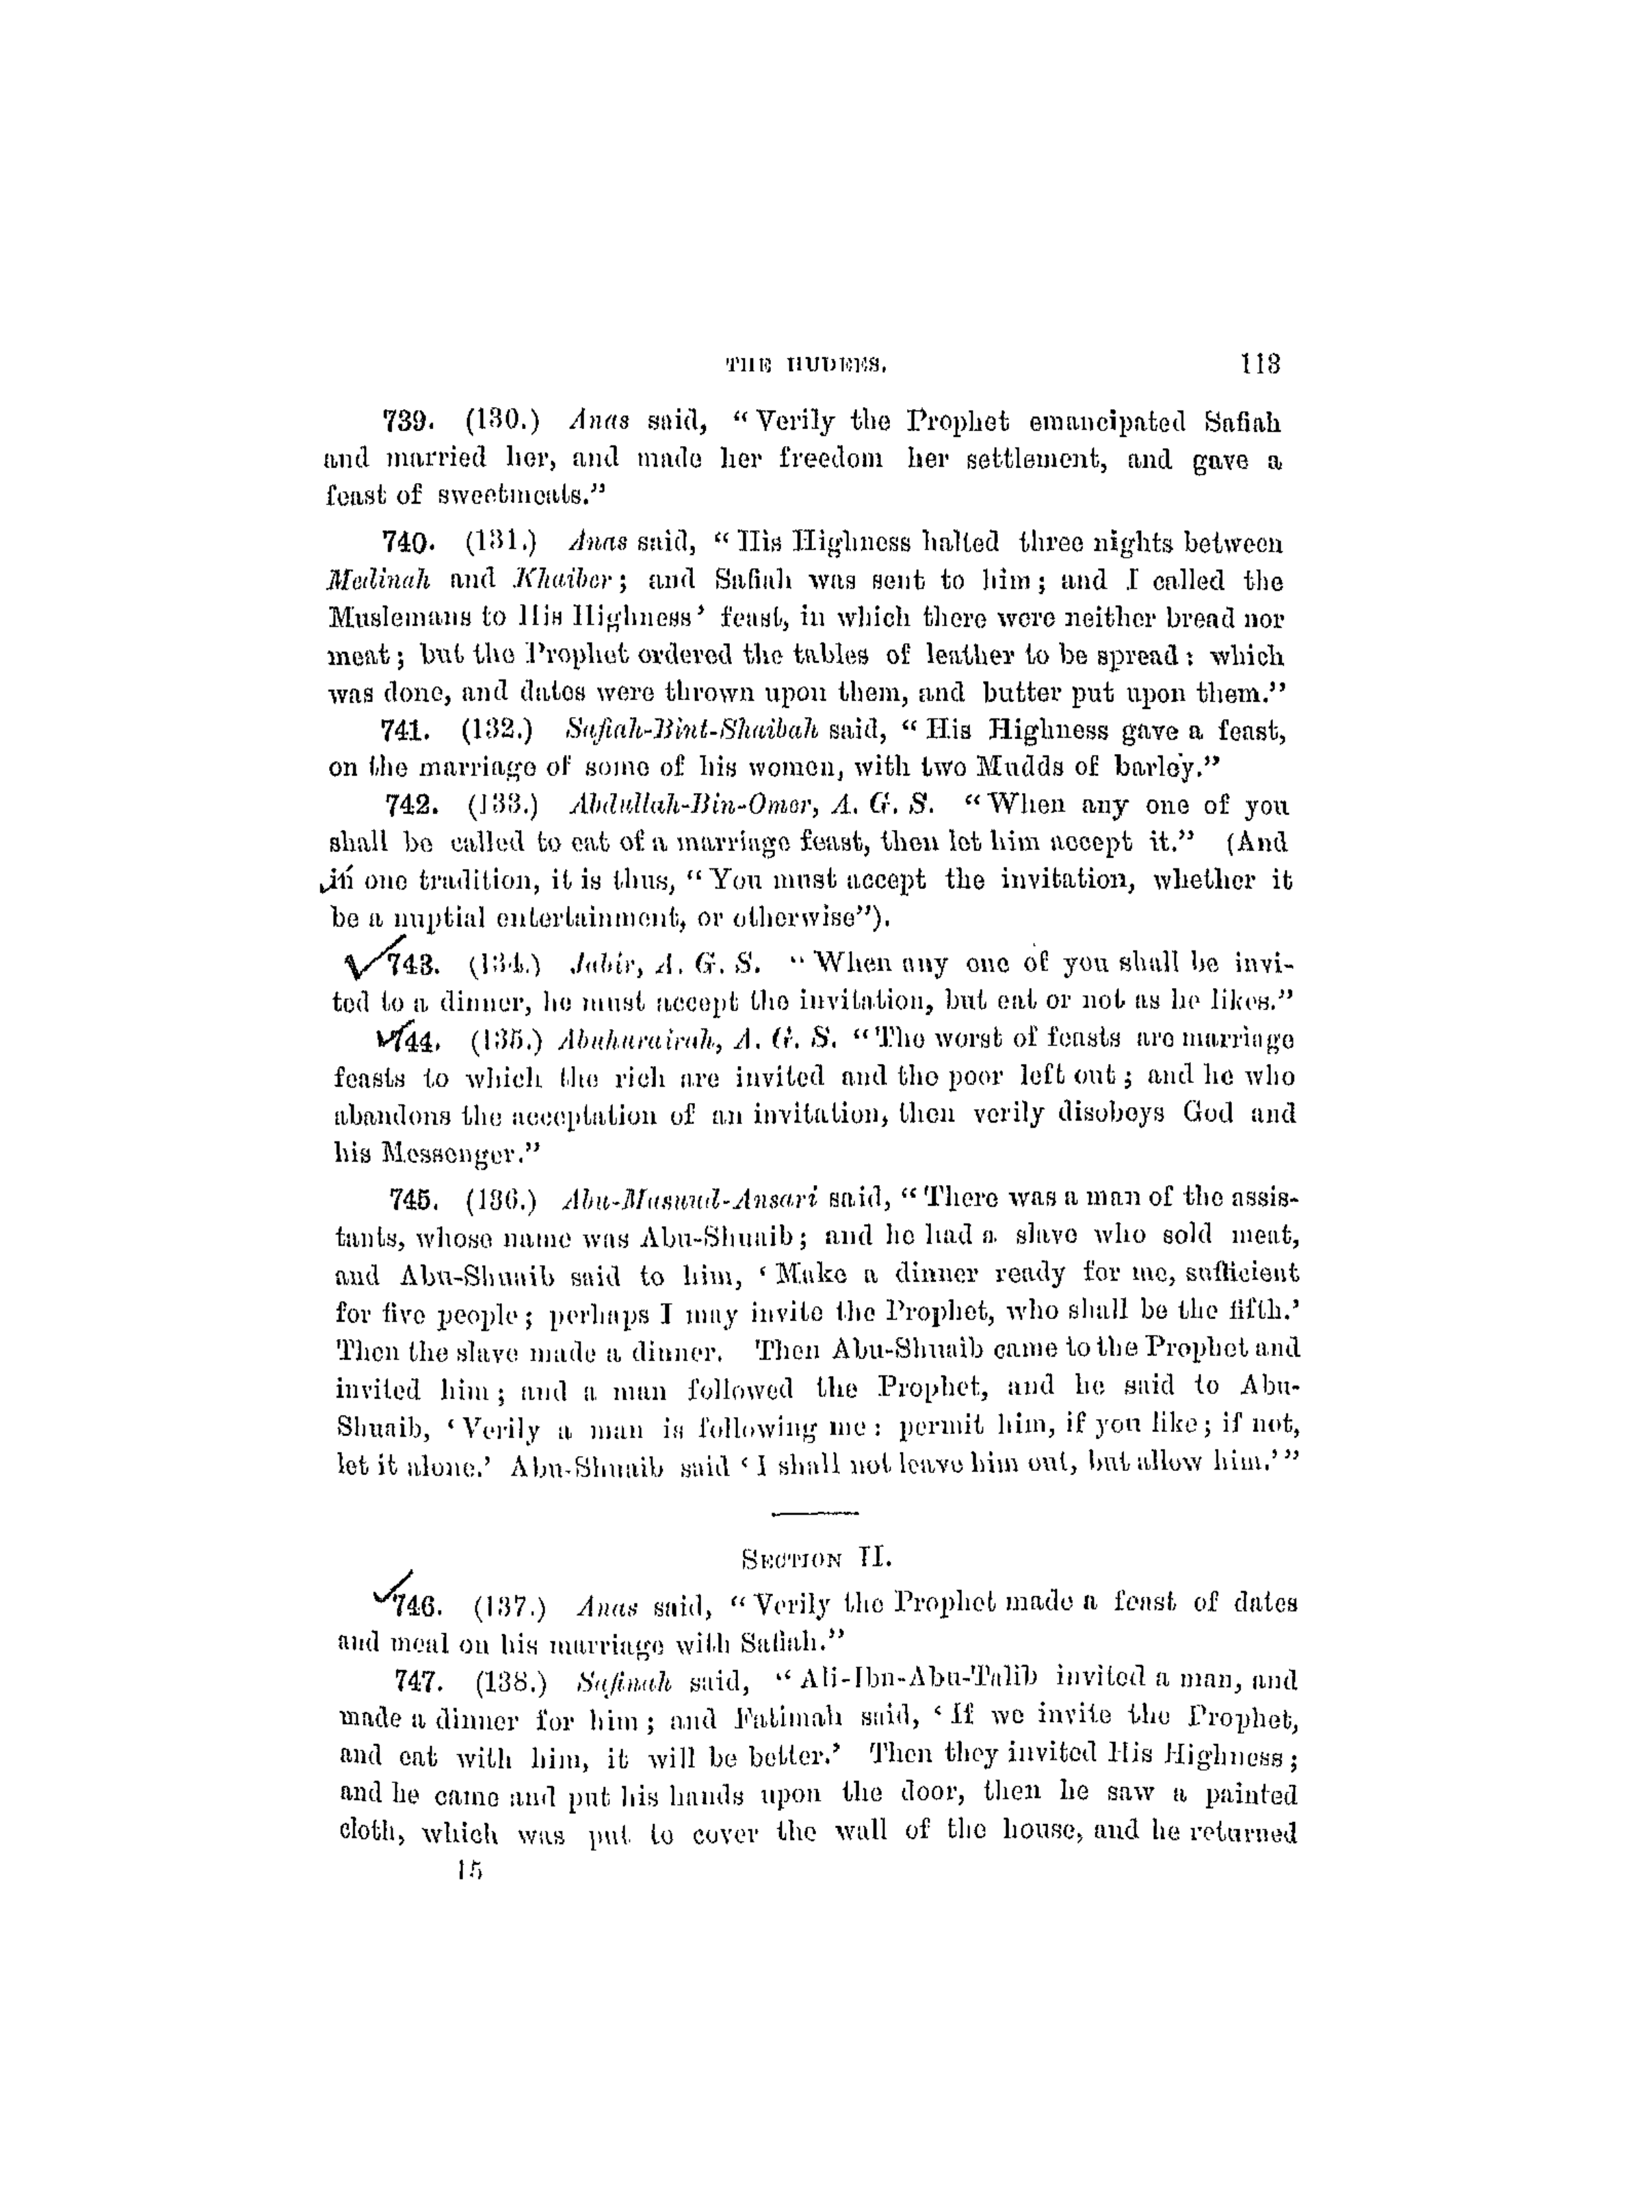 THE HUDEES. 113
739. (130.) Anas said, “Verily the Prophet emancipated Safiah
and married her, and made her freedom her settlement, and gave a
feast of sweetmeats.”
740. (131.) Anas said, “His Highness halted three nights between
Medinah and Khaiber; and Safiah was sent to him; and I called the
Muslemans to His Highness’ feast, in which there were neither bread nor
meat; but the Prophet ordered the tables of leather to be spread: which
was done, and dates were thrown upon them, and butter put upon them.”
741. (132.) Safiah-Bint-Shaibah said, “His Highness gave a feast,
on the marriage of some of his women, with two Mudds of barley.”
742. (133.) Abdullah-Bin-Omer, A. G. S. “When any one of you
shall be called to eat of a marriage feast, then let him accept it.” (And
in one tradition, it is thus, “You must accept the invitation, whether it
be a nuptial entertainment, or otherwise”).
743. (134.) Jabir, A. G. S. “When any one of you shall be invi-
ted to a dinner, he must accept the invitation, but eat or not as he likes.”
744. (135.) Abuhurairah, A. G. S. “The worst of feasts are marriage
feasts to which the rich are invited and the poor left out; and he who
abandons the acceptation of an invitation, then verily disobeys God and
his Messenger.”
745. (136.) Abu-Masuud-Ansari said, “There was a man of the assis-
tants, whose name was Abu-Shuaib; and he had a slave who sold meat,
and Abu-Shuaib said to him, ‘Make a dinner ready for me, sufficient
for five people; perhaps I may invite the Prophet, who shall be the fifth.’
Then the slave made a dinner. Then Abu-Shuaib came to the Prophet and
invited him; and a man followed the Prophet, and he said to Abu-
Shuaib, ‘Verily a man is following me: permit him, if you like; if not,
let it alone.’ Abu-Shuaib said ‘I shall not leave him out, but allow him.’”
SECTION II.
746. (137.) Anas said, “Verily the Prophet made a feast of dates
and meal on his marriage with Safiah.”
747. (138.) Safinah said, “Ali-Ibn-Abu-Talib invited a man, and
made a dinner for him; and Fatimah said, ‘If we invite the Prophet,
and eat with him, it will be better.’ Then they invited His Highness;
and he came and put his hands upon the door, then he saw a painted
cloth, which was put to cover the wall of the house, and he returned
15